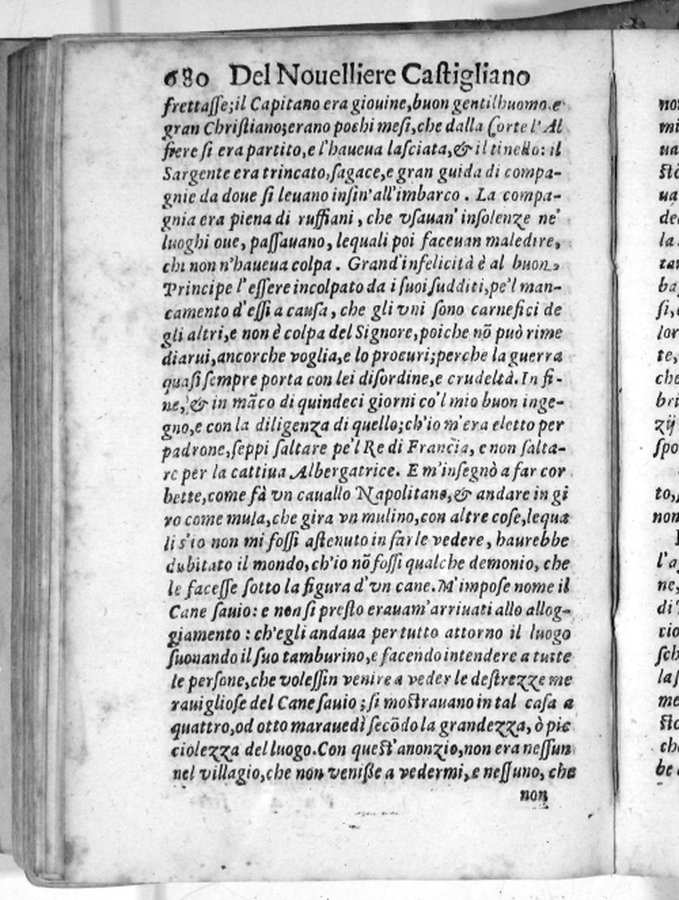 680 Del Nouelliere Castigliano
frettasse;il Capitano era giouine,buon gentilhuomo e
gran Christiano;erano pochi mesi,che dalla Corte l'Al
fiere si era partito,e l'haueua lasciata,& il tinello: il
Sargente era trincato,sagace,e gran guida di compa-
gnie da doue si leuano insin'all'imbarco . La compa-
gnia era piena di ruffiani , che vsauan' insolenze ne'
luoghi oue, passauano, lequali poi faceuan maledire,
chi non n'haueua colpa . Grand'infelicità è al buon
Principe l'essere incolpato da i suoi sudditi,pe'l man-
camento d'essi a causa, che gli vni sono carnefici de
gli altri,e non è colpa del Signore,poiche nõ può rime
diarui,ancorche voglia,e lo procuri;perche la guerra
quasi sempre porta con lei disordine,e crudeltà. In fi-
ne, & in mãco di quindeci giorni co'l mio buon inge-
gno,e con la diligenza di quello;ch'io m'era eletto per
padrone,seppi saltare pe'l Re di Francia, e non salta-
re per la cattiua Albergatrice. E m'insegnò a far cor
bette,come fà vn cauallo Napolitano,& andare in gi
ro come mula,che gira vn mulino,con altre cose,lequa
li s'io non mi fossi astenuto in farle vedere, haurebbe
dubitato il mondo,ch'io nõ fossi qualche demonio, che
le facesse sotto la figura d'vn cane.M'impose nome il
Cane sauio: e non si presto erauam'arriuati allo allog-
giamento : ch'egli andaua per tutto attorno il luogo
suonando il suo tamburino,e facendo intendere a tutte
le persone,che volessin venire a veder le destrezze me
rauigliose del Cane sauio ; si mostrauano in tal casa a
quattro,od otto marauedì secõdo la grandezza, ò pic
ciolezza del luogo.Con quest'anonzio,non era nessun
nel villagio,che non venisse a vedermi,e nessuno, che
non